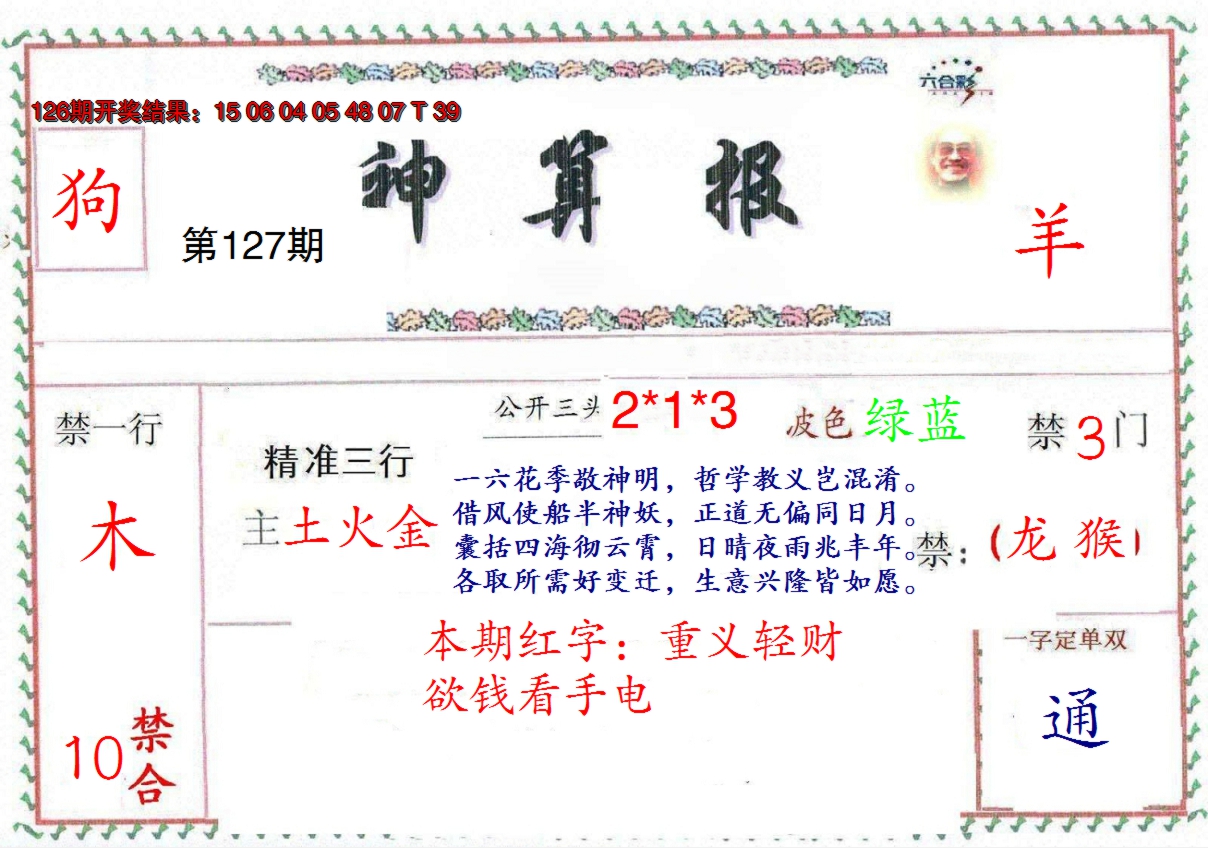 六合彩
126期开奖结果：15 06 04 05 48 07 T 39
神算报
狗
第127期
羊
禁一行
木
10禁合
公开三头 2*1*3
波色 绿蓝
禁3门
精准三行
主土火金
一六花季敬神明，哲学教义岂混淆。
借风使船半神妖，正道无偏同日月。
囊括四海彻云霄，日晴夜雨兆丰年。
各取所需好变迁，生意兴隆皆如愿。
禁：（龙 猴）
本期红字：重义轻财
欲钱看手电
一字定单双
通